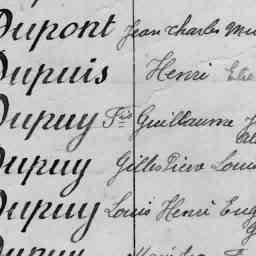 Dupont Jean Charles
Dupuis Henri
Dupuy Fs Guillaume
Dupuy Gilles Pierre Louis
Dupuy Louis Henri Eug
Dupuy